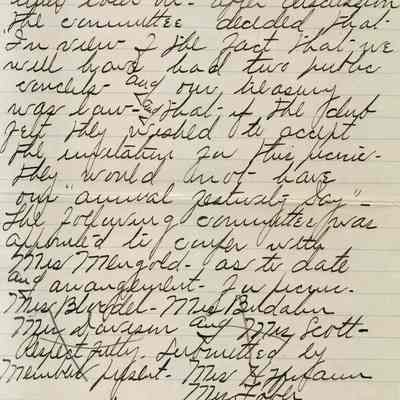 after discussion
The committee decided that
In view of the fact that we
will have had two public
and our treasury
was low - and that if the club
felt they wished to accept
the invitation for this picnic -
They would not have
our "annual festival day" -
The following committee was
appointed to confer with
Mrs Mengold - as to date
and arrangement - for picnic.
Mrs Blondel - Mrs Budahn
Mrs Davison and Mrs Scott -
Respectfully Submitted by
Members present - Mrs Hufann
Mrs Faber